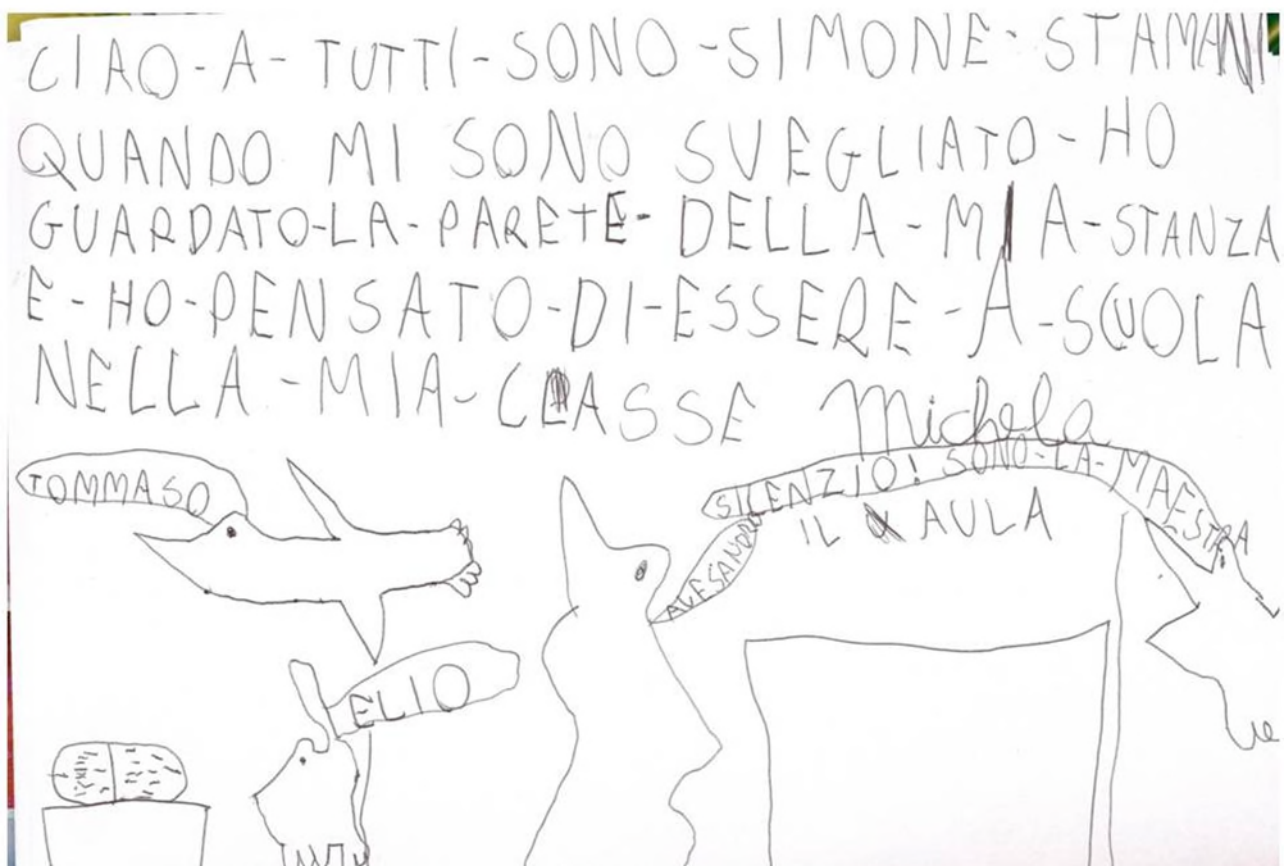 CIAO-A-TUTTI-SONO-SIMONE-STAMANI
QUANDO MI SONO SVEGLIATO-HO
GUARDATO-LA-PARETE-DELLA-MIA-STANZA
E-HO-PENSATO-DI-ESSERE-A-SCUOLA
NELLA-MIA-CLASSE
Michela
TOMMASO
SILENZIO! SONO-LA-MAESTRA
IL AULA
ALESANDRO
ELIO